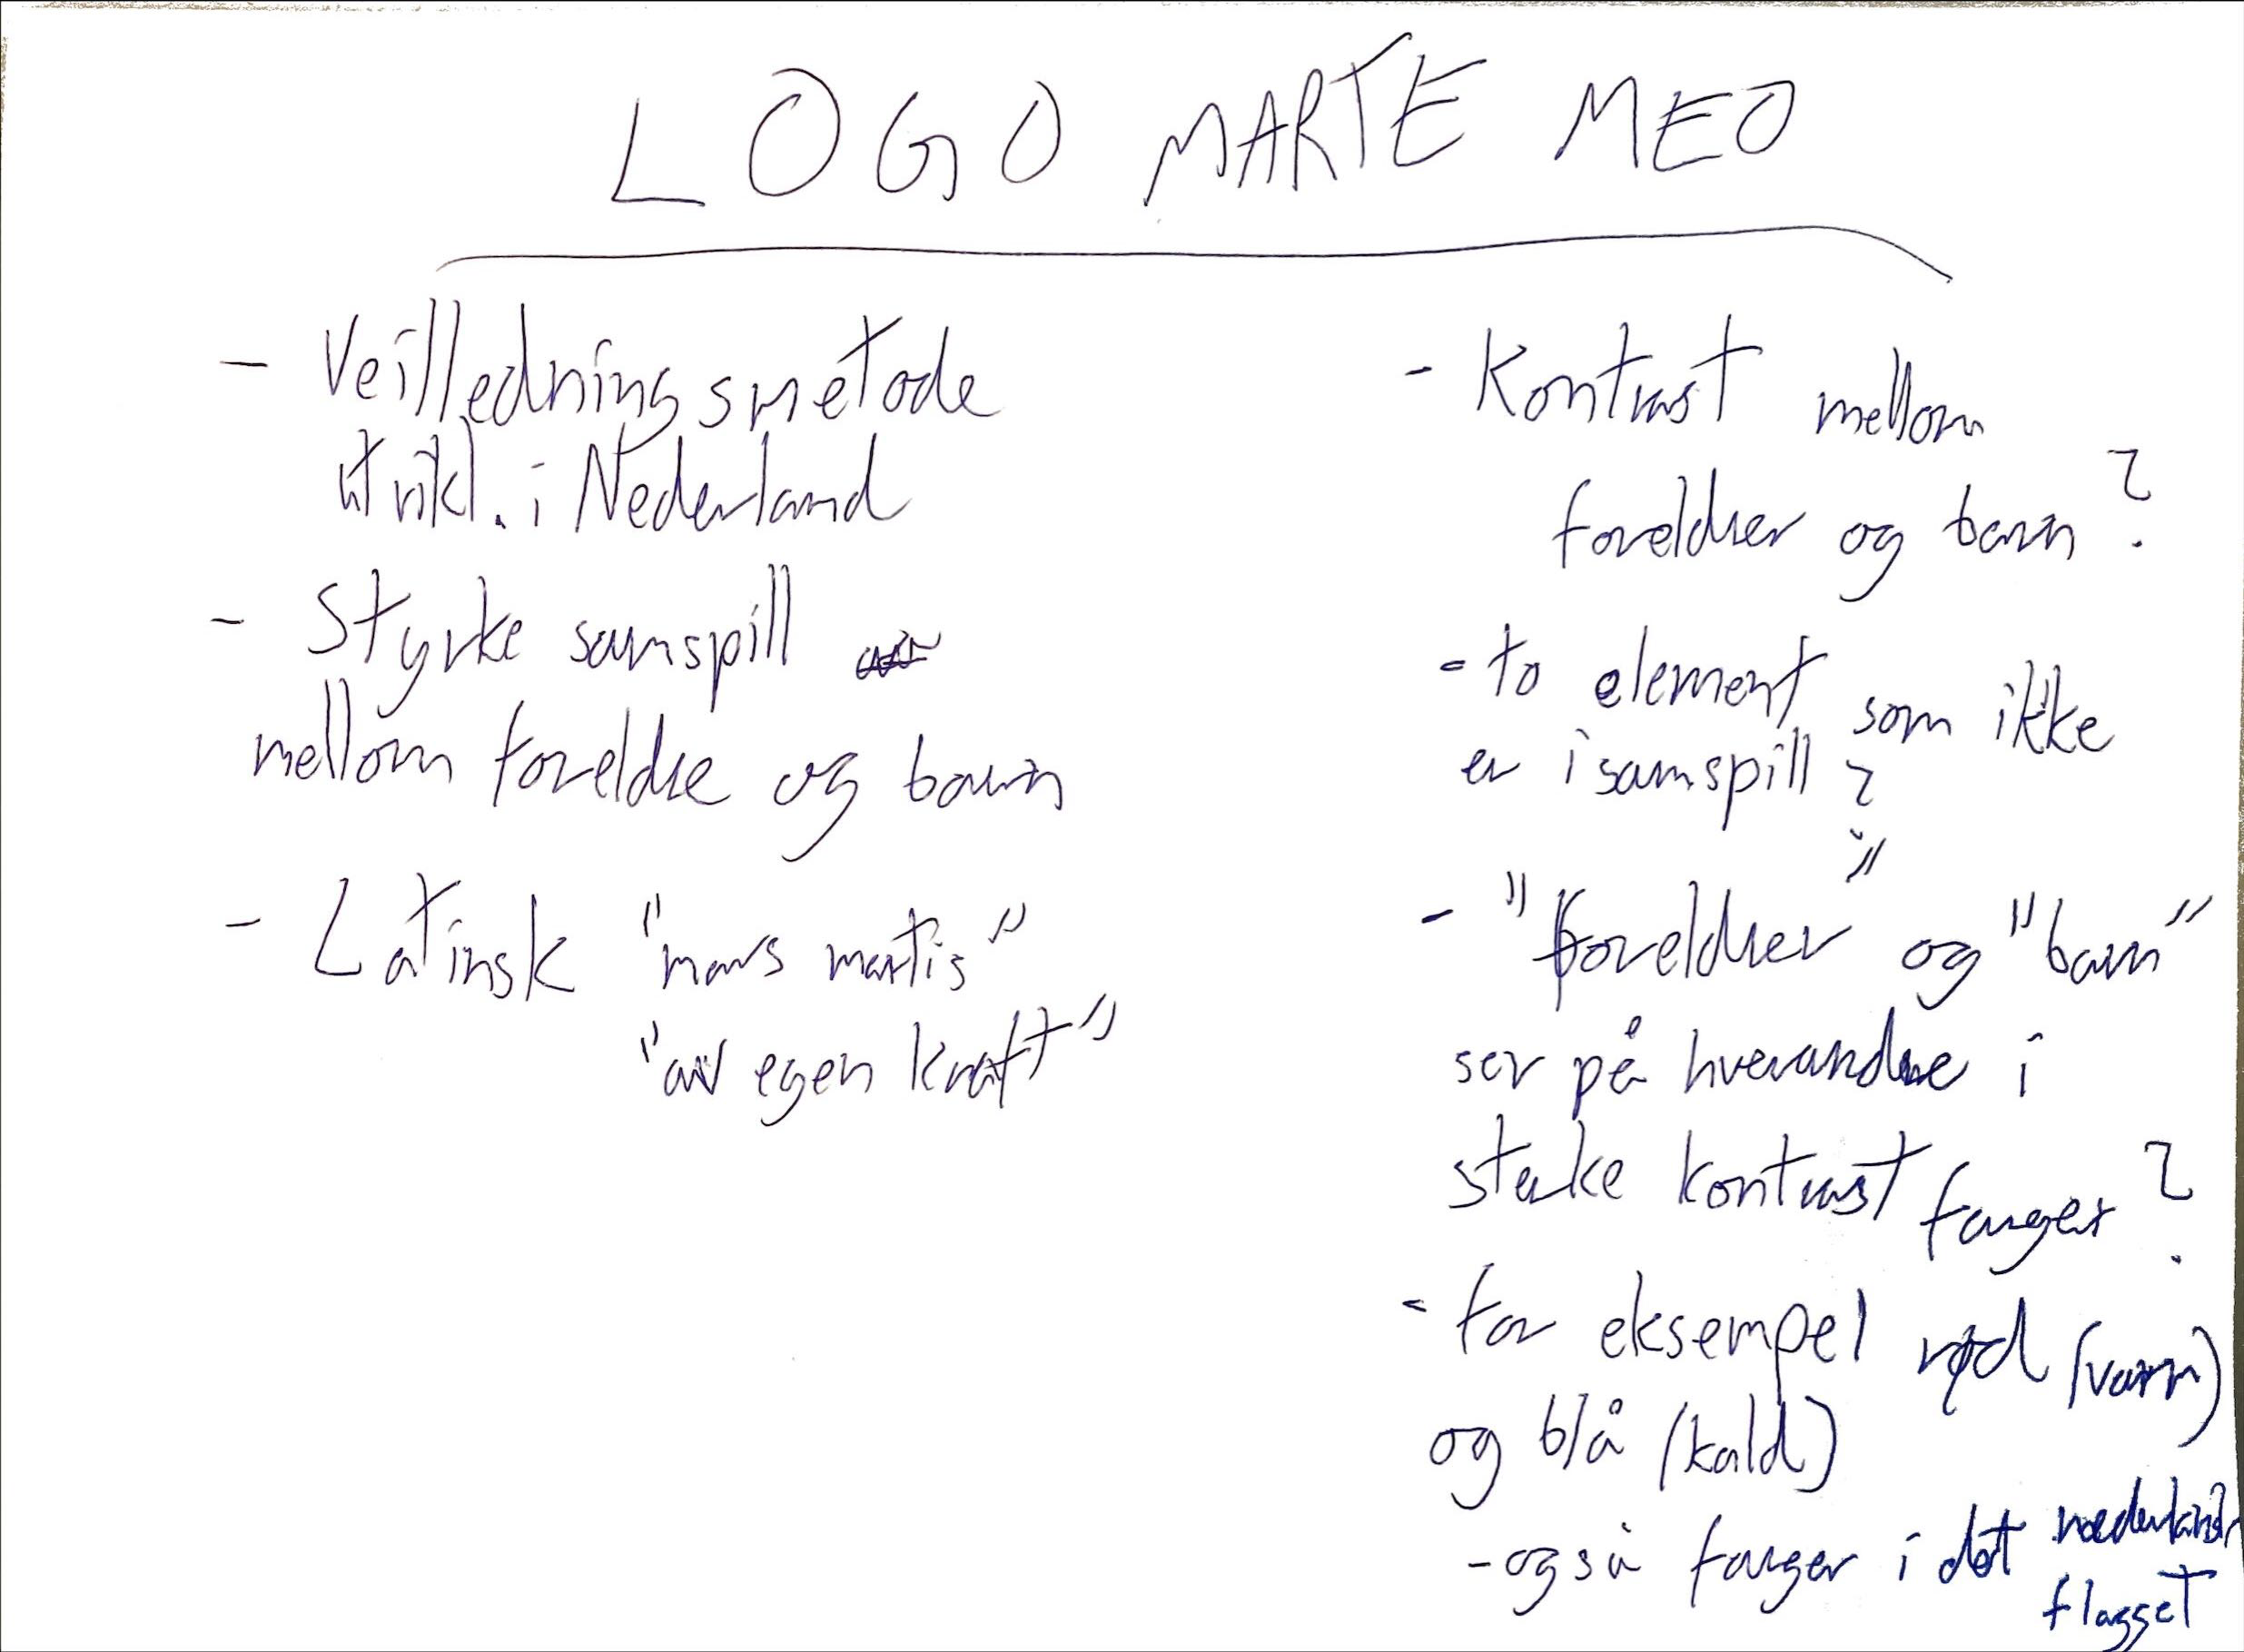 LOGO MARTE MEO
- Veilledningsmetode
utvikl. i Nederland
- Styrke samspill
mellom foreldre og barn
- Latinsk "mars martis"
"av egen kraft"
- Kontrast mellom
foreldrer og barn?
- to element som ikke
er i samspill?
- "foreldrer" og "barn"
ser på hverandre i
sterke kontrast farger?
- for eksempel rød (varm)
og blå (kald)
- også farger i det
flagget